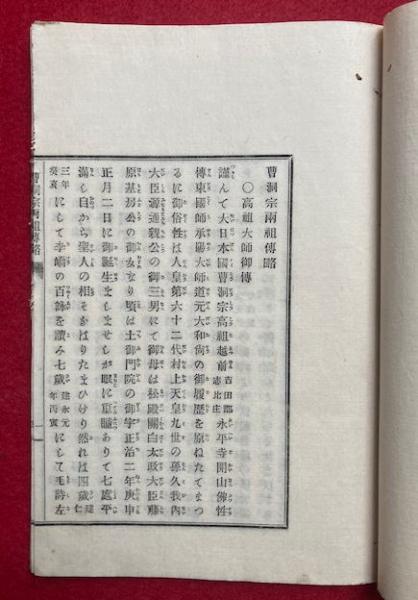 曹洞宗兩祖傳略
〇高祖大師御傳
謹んて大日本國曹洞宗高祖越前吉田郡志比庄永平寺開山佛性
傳東國師承陽大師道元大和尚の御履歷を原ねたてまつ
るに御俗性は人皇第六十二代村上天皇九世の孫久我內
大臣源通親公の御三男にて御母は松殿關白太政大臣藤
原基房公の御女なり頃は土御門院の御宇正治二年庚申
正月二日に御誕生ましませしが眼に重瞳ありて七處平
滿し自から聖人の相そなはりたまひけり然れは四歲建仁
三年癸亥にして李嶠の百詠を讀み七歲建永元年丙寅にして毛詩左
曹洞宗兩祖傳略
一